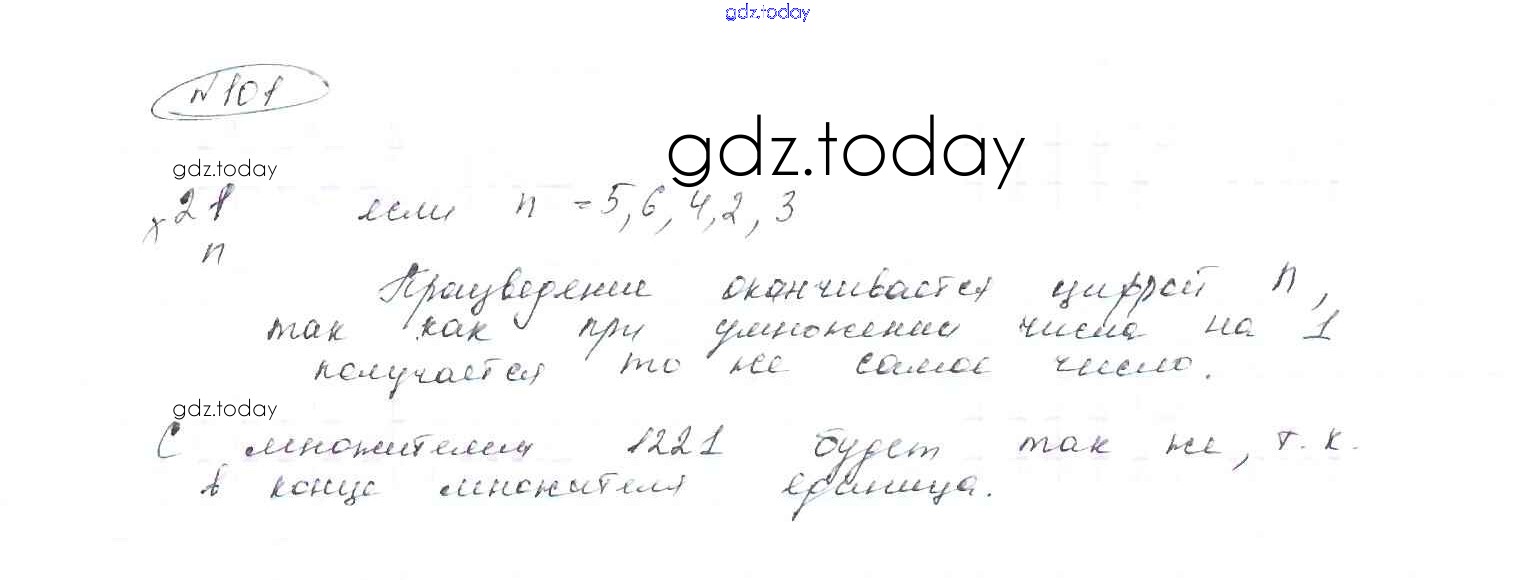 gdz.today
№101
gdz.today
gdz.today
х 21 если n = 5, 6, 4, 2, 3
n
Произведение оканчивается цифрой n,
так как при умножении числа на 1
получается то же самое число.
gdz.today
С множителем 1221 будет так же, т. к.
в конце множителя единица.